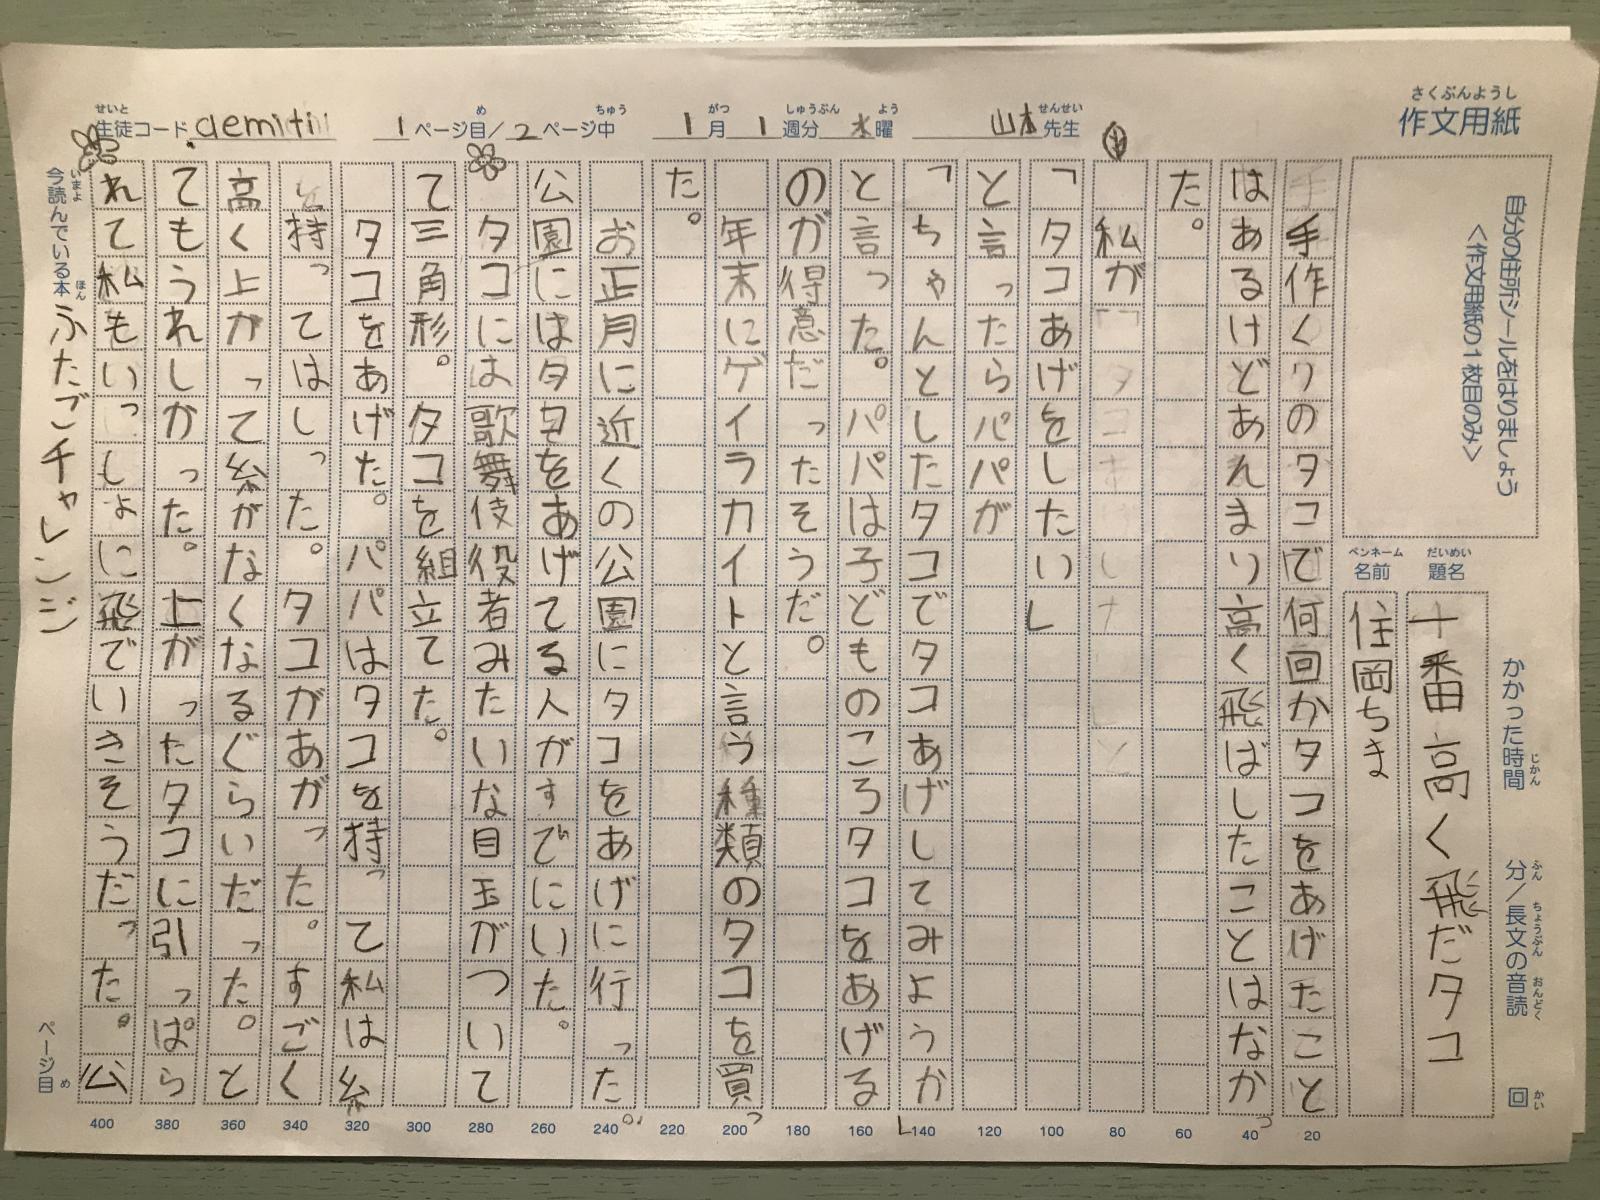 作文用紙
さくぶんようし
生徒コード demitiii 1 ページ目/2 ページ中 1月 1週分 水曜 山本 先生
せいと め ちゅう がつ しゅうぶん よう せんせい
自分の住所シールをはりましょう
<作文用紙の1枚目のみ>
題名 十番高く飛だタコ
だいめい
名前 住岡ちま
ペンネーム
かかった時間 分/長文の音読 回
じかん ふん ちょうぶん おんどく かい
手作りのタコで何回かタコをあげたこと
はあるけどあんまり高く飛ばしたことはなかっ
た。
私が
「タコあげをしたい」
と言ったらパパが
「ちゃんとしたタコでタコあげしてみようか」
と言った。パパは子どものころタコをあげる
のが得意だったそうだ。
年末にゲイラカイトと言う種類のタコを買っ
た。
お正月に近くの公園にタコをあげに行った。
公園にはタコをあげてる人がすでにいた。
タコには歌舞伎役者みたいな目玉がついて
て三角形。タコを組立てた。
タコをあげた。パパはタコを持って私は糸
を持ってはしった。タコがあがった。すごく
高く上がって糸がなくなるぐらいだった。と
てもうれしかった。上がったタコに引っぱら
れて私もいっしょに飛でいきそうだった。公
20
40
60
80
100
120
140
160
180
200
220
240
260
280
300
320
340
360
380
400
今読んでいる本 ふたごチャレンジ ページ目
いまよ ほん め